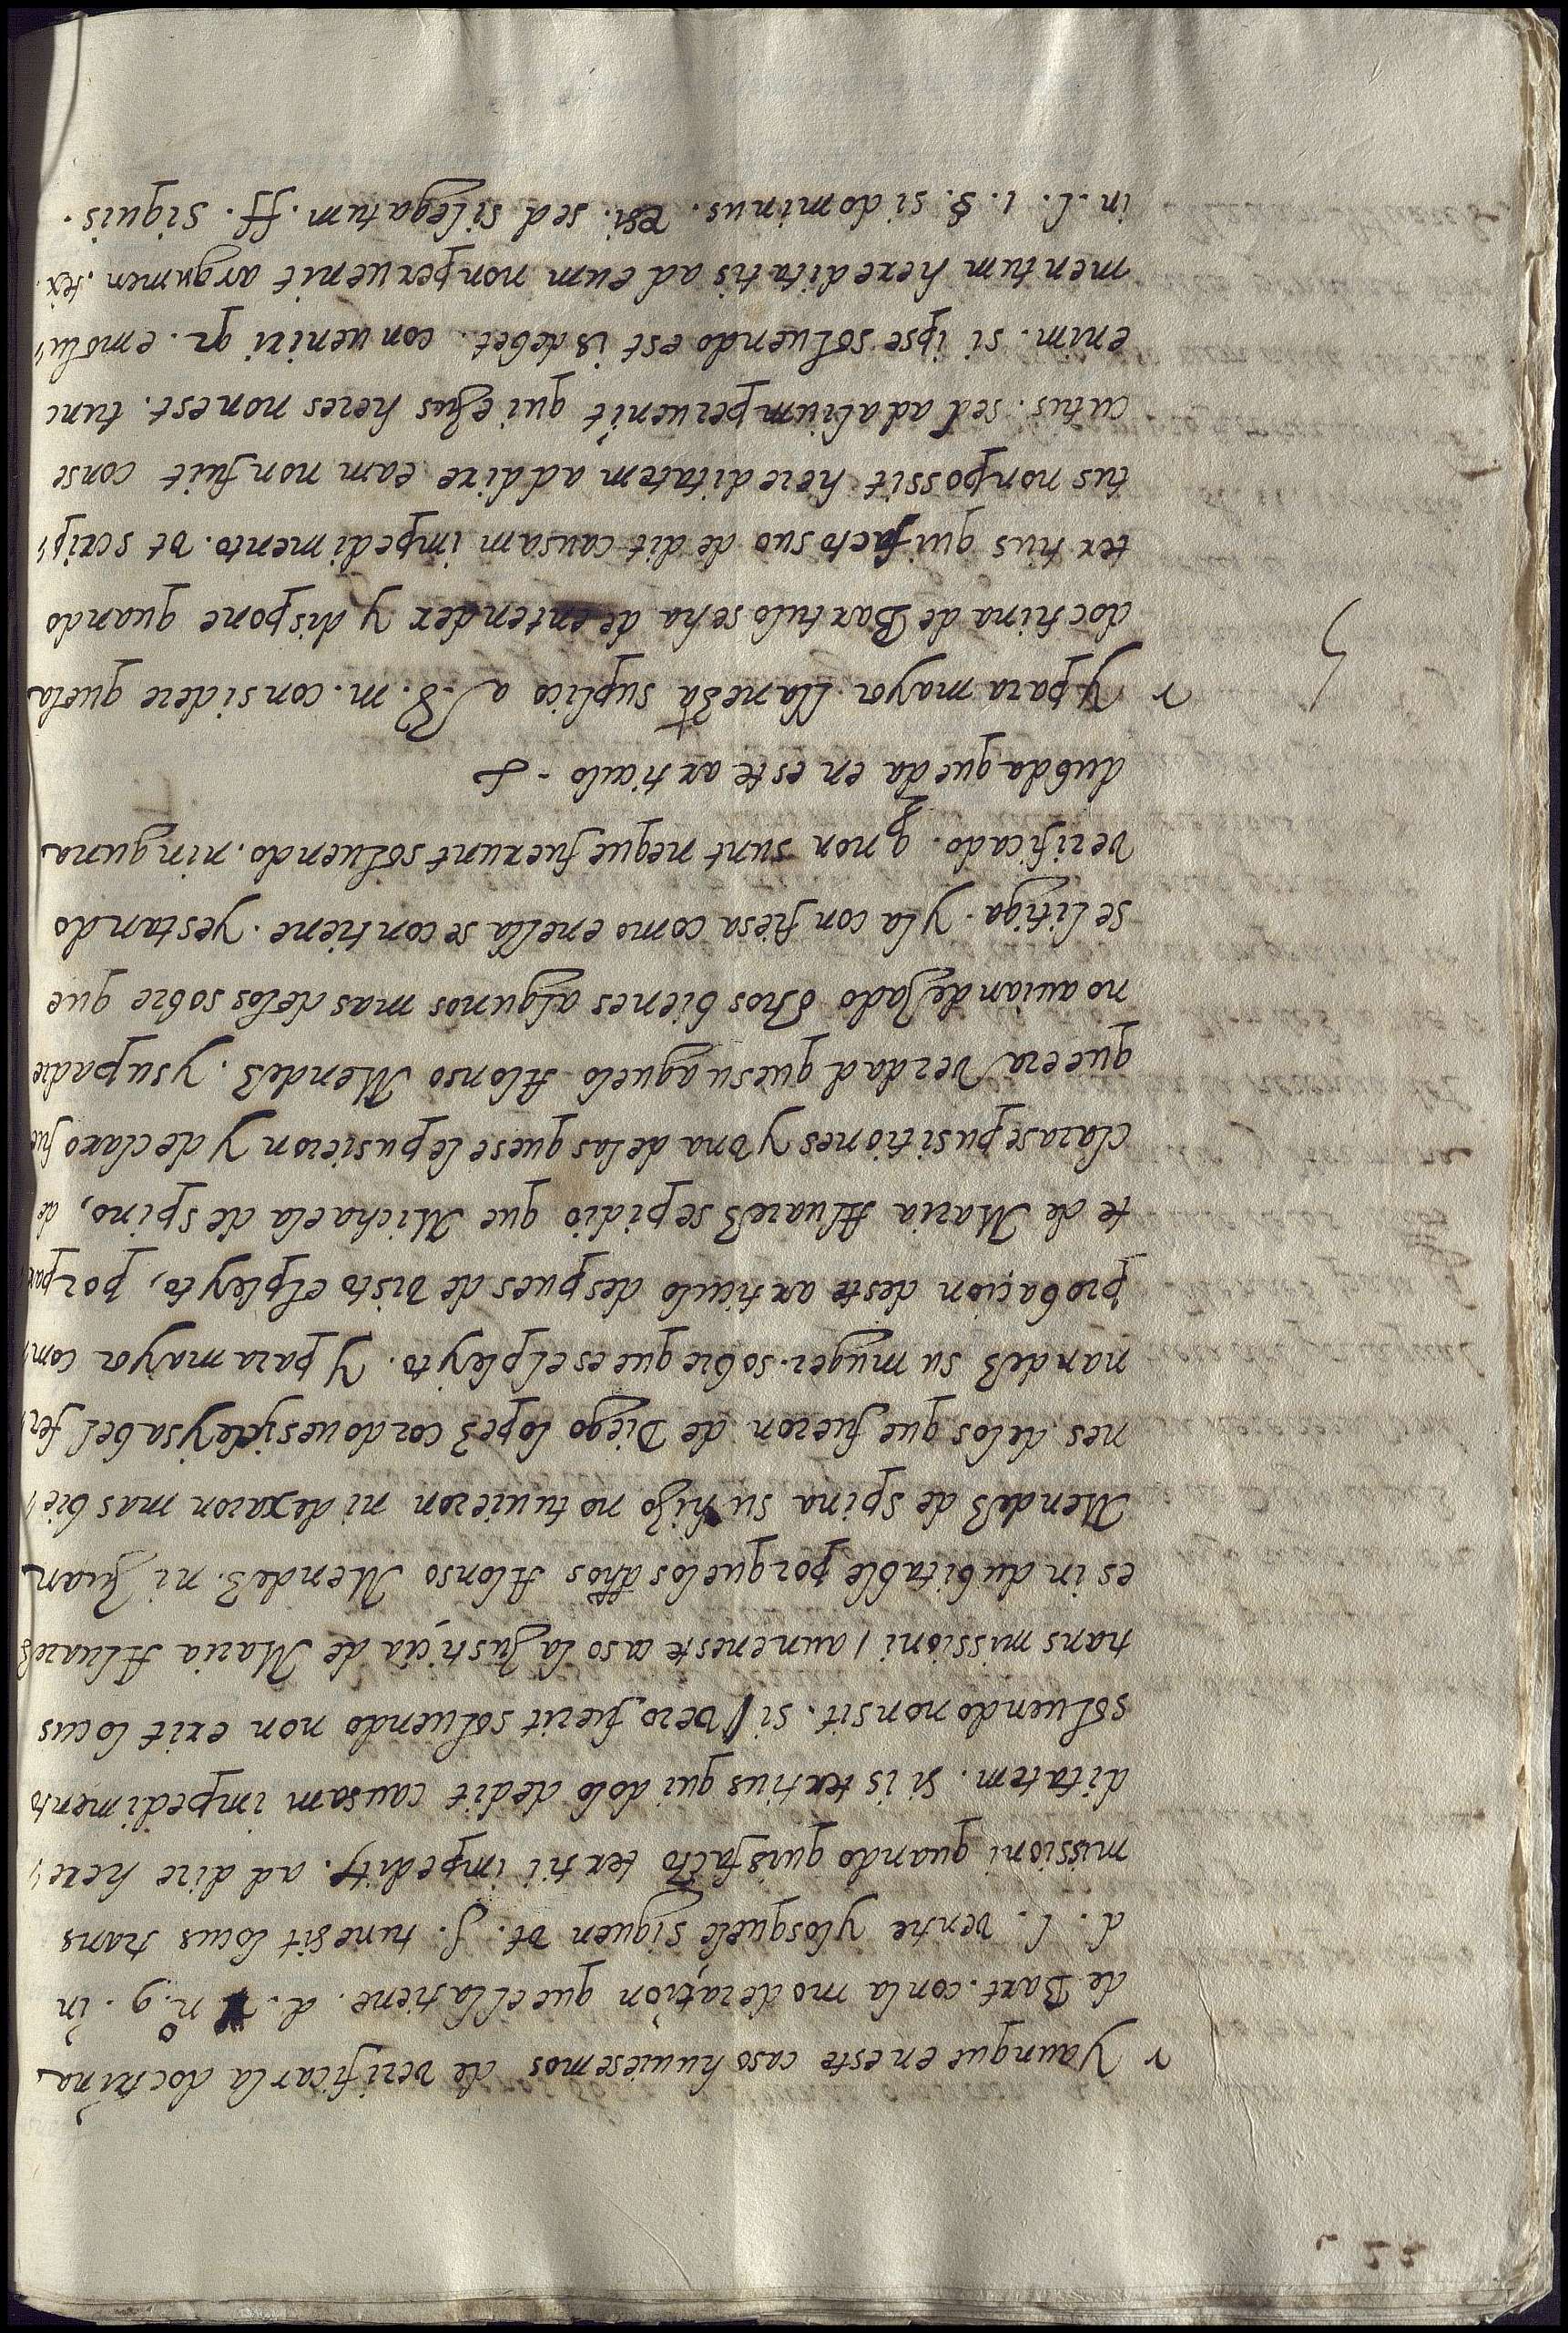 Y aunque en este caso huuiesemos de verificar la doctrina
de Bart. con la moderaçion que ella tiene. d. nº. 9. in
d. l. ventre y los que le siguen vt. s. tunc sit locus trans
missioni quando quis facto tertii impeditr. ad dire here,
ditatem. si is tertius qui dolo dedit causam impedimento
soluendo non sit. si vero fuerit soluendo non erit locus
trans missioni / aun en este caso la Justiçia de Maria Aluares
es in dubitable porque los dhos Alonso Mendes. ni Juan
Mendes de spina su hijo no tuuieron ni dexaron mas bie,
nes de los que fueron de Diego lopes cordoues y de ysabel fer,
nandes su muger. sobre que es el pleyto. Y para mayor com,
probaçion deste articulo despues de visto el pleyto, por par
te de Maria Aluares se pidio que Michaela de spino, de
clarase pusitiones y vna de las que se le pusieron y declaro fue
que era verdad que su aguelo Alonso Mendes. y su padre
no auian dejado otros bienes algunos mas de los sobre que
se litiga. y la confiesa como en ella se contiene. y estando
verificado. q non sunt neque fuerunt soluendo. ninguna
dubda queda en este articulo -
Y para mayor llaneza suplico a V. m. considere que la
doctrina de Bartulo se ha de entender y dispone quando
tertius qui facto suo dedit causam impedimento. vt scrip,
tus non possit hereditatem addire eam non fuit conse
cutus. sed ad alium peruenit qui ejus heres non est. tunc
enim. si ipse soluendo est is debet. conueniri qr. emolu,
mentum hereditatis ad eum non peruenit argumen. tex.
in. l. 1. §. si dominus. et §. sed si legatum. ff. si quis.